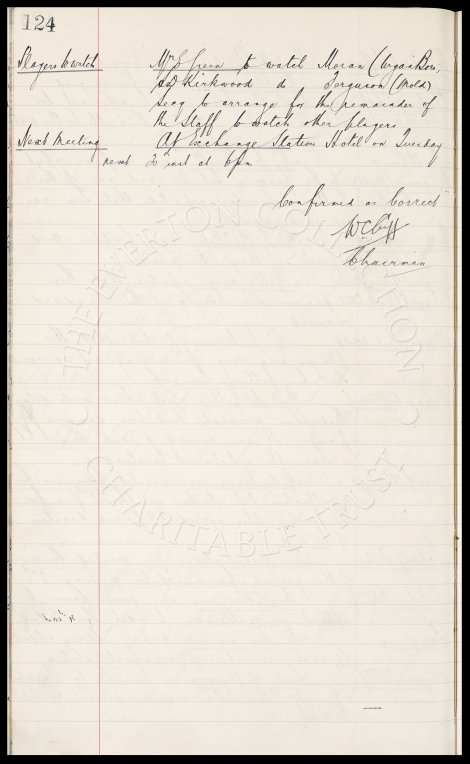 124
Players to watch Mr J Green to watch Moran (Wigan Boro,
Kirkwood do Ferguson (Mold)
Secy to arrange for the remainder of
the staff to watch other players
Next Meeting At Exchange Station Hotel on Tuesday
next 2nd inst at 6pm
Confirmed as Correct
W C Cuff
Chairman
THE EVERTON COLLECTION
CHARITABLE TRUST